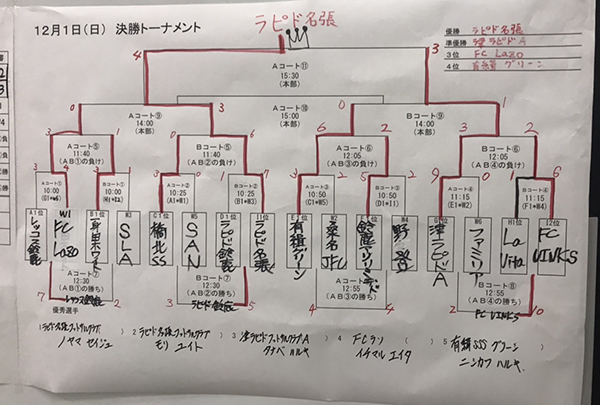 12月1日(日) 決勝トーナメント
ラピド名張
優勝 ラピド名張
準優勝 津ラピドA
3位 FC Lazo
4位 有緝 グリーン
4 3
Aコート⑪
15:30
(本部)
Aコート⑩
15:00
(本部)
0 3 0 1
Aコート⑨
14:00
(本部)
Bコート⑨
14:00
(本部)
3 1 0 6 6 2 3 2
Aコート⑤
11:40
(AB①の負け)
Bコート⑤
11:40
(AB②の負け)
Aコート⑥
12:05
(AB③の負け)
Bコート⑥
12:05
(AB④の負け)
Aコート①
10:00
(G1*W5)
Bコート①
10:00
Aコート②
10:25
(A1*W1)
Bコート②
10:25
(B1*W3)
Aコート③
10:50
(C1*W6)
Bコート③
10:50
(D1*I1)
Aコート④
11:15
(E1*W2)
Bコート④
11:15
(F1*W4)
A1位 W1 B1位 W3 C1位 W5 D1位 I1位 E1位 W2 W4 G1位 W6 H1位
FC Lazo
SLA
橋北SS
SAN
ラピド鈴鹿
ラピド名張
有緝グリーン
桑名JFC
野登
津ラピドA
ファミリア
La Vita
FC VINKS
Aコート⑦
12:30
(AB①の勝ち)
Bコート⑦
12:30
(AB②の勝ち)
Aコート⑧
12:55
(AB③の勝ち)
Bコート⑧
12:55
(AB④の勝ち)
7 2 3 5 4 4 2 10
ラピド鈴鹿
FC VINKS
優秀選手
1 ラピド名張フットサルクラブ
ノヤマ セイジュ
2 ラピド名張フットサルクラブ
モリ ユイト
3 津ラピドフットサルクラブA
タナベ ハルキ
4 FCラソ
イチマル エイタ
5 有緝SSS グリーン
ニシカワ ハルキ